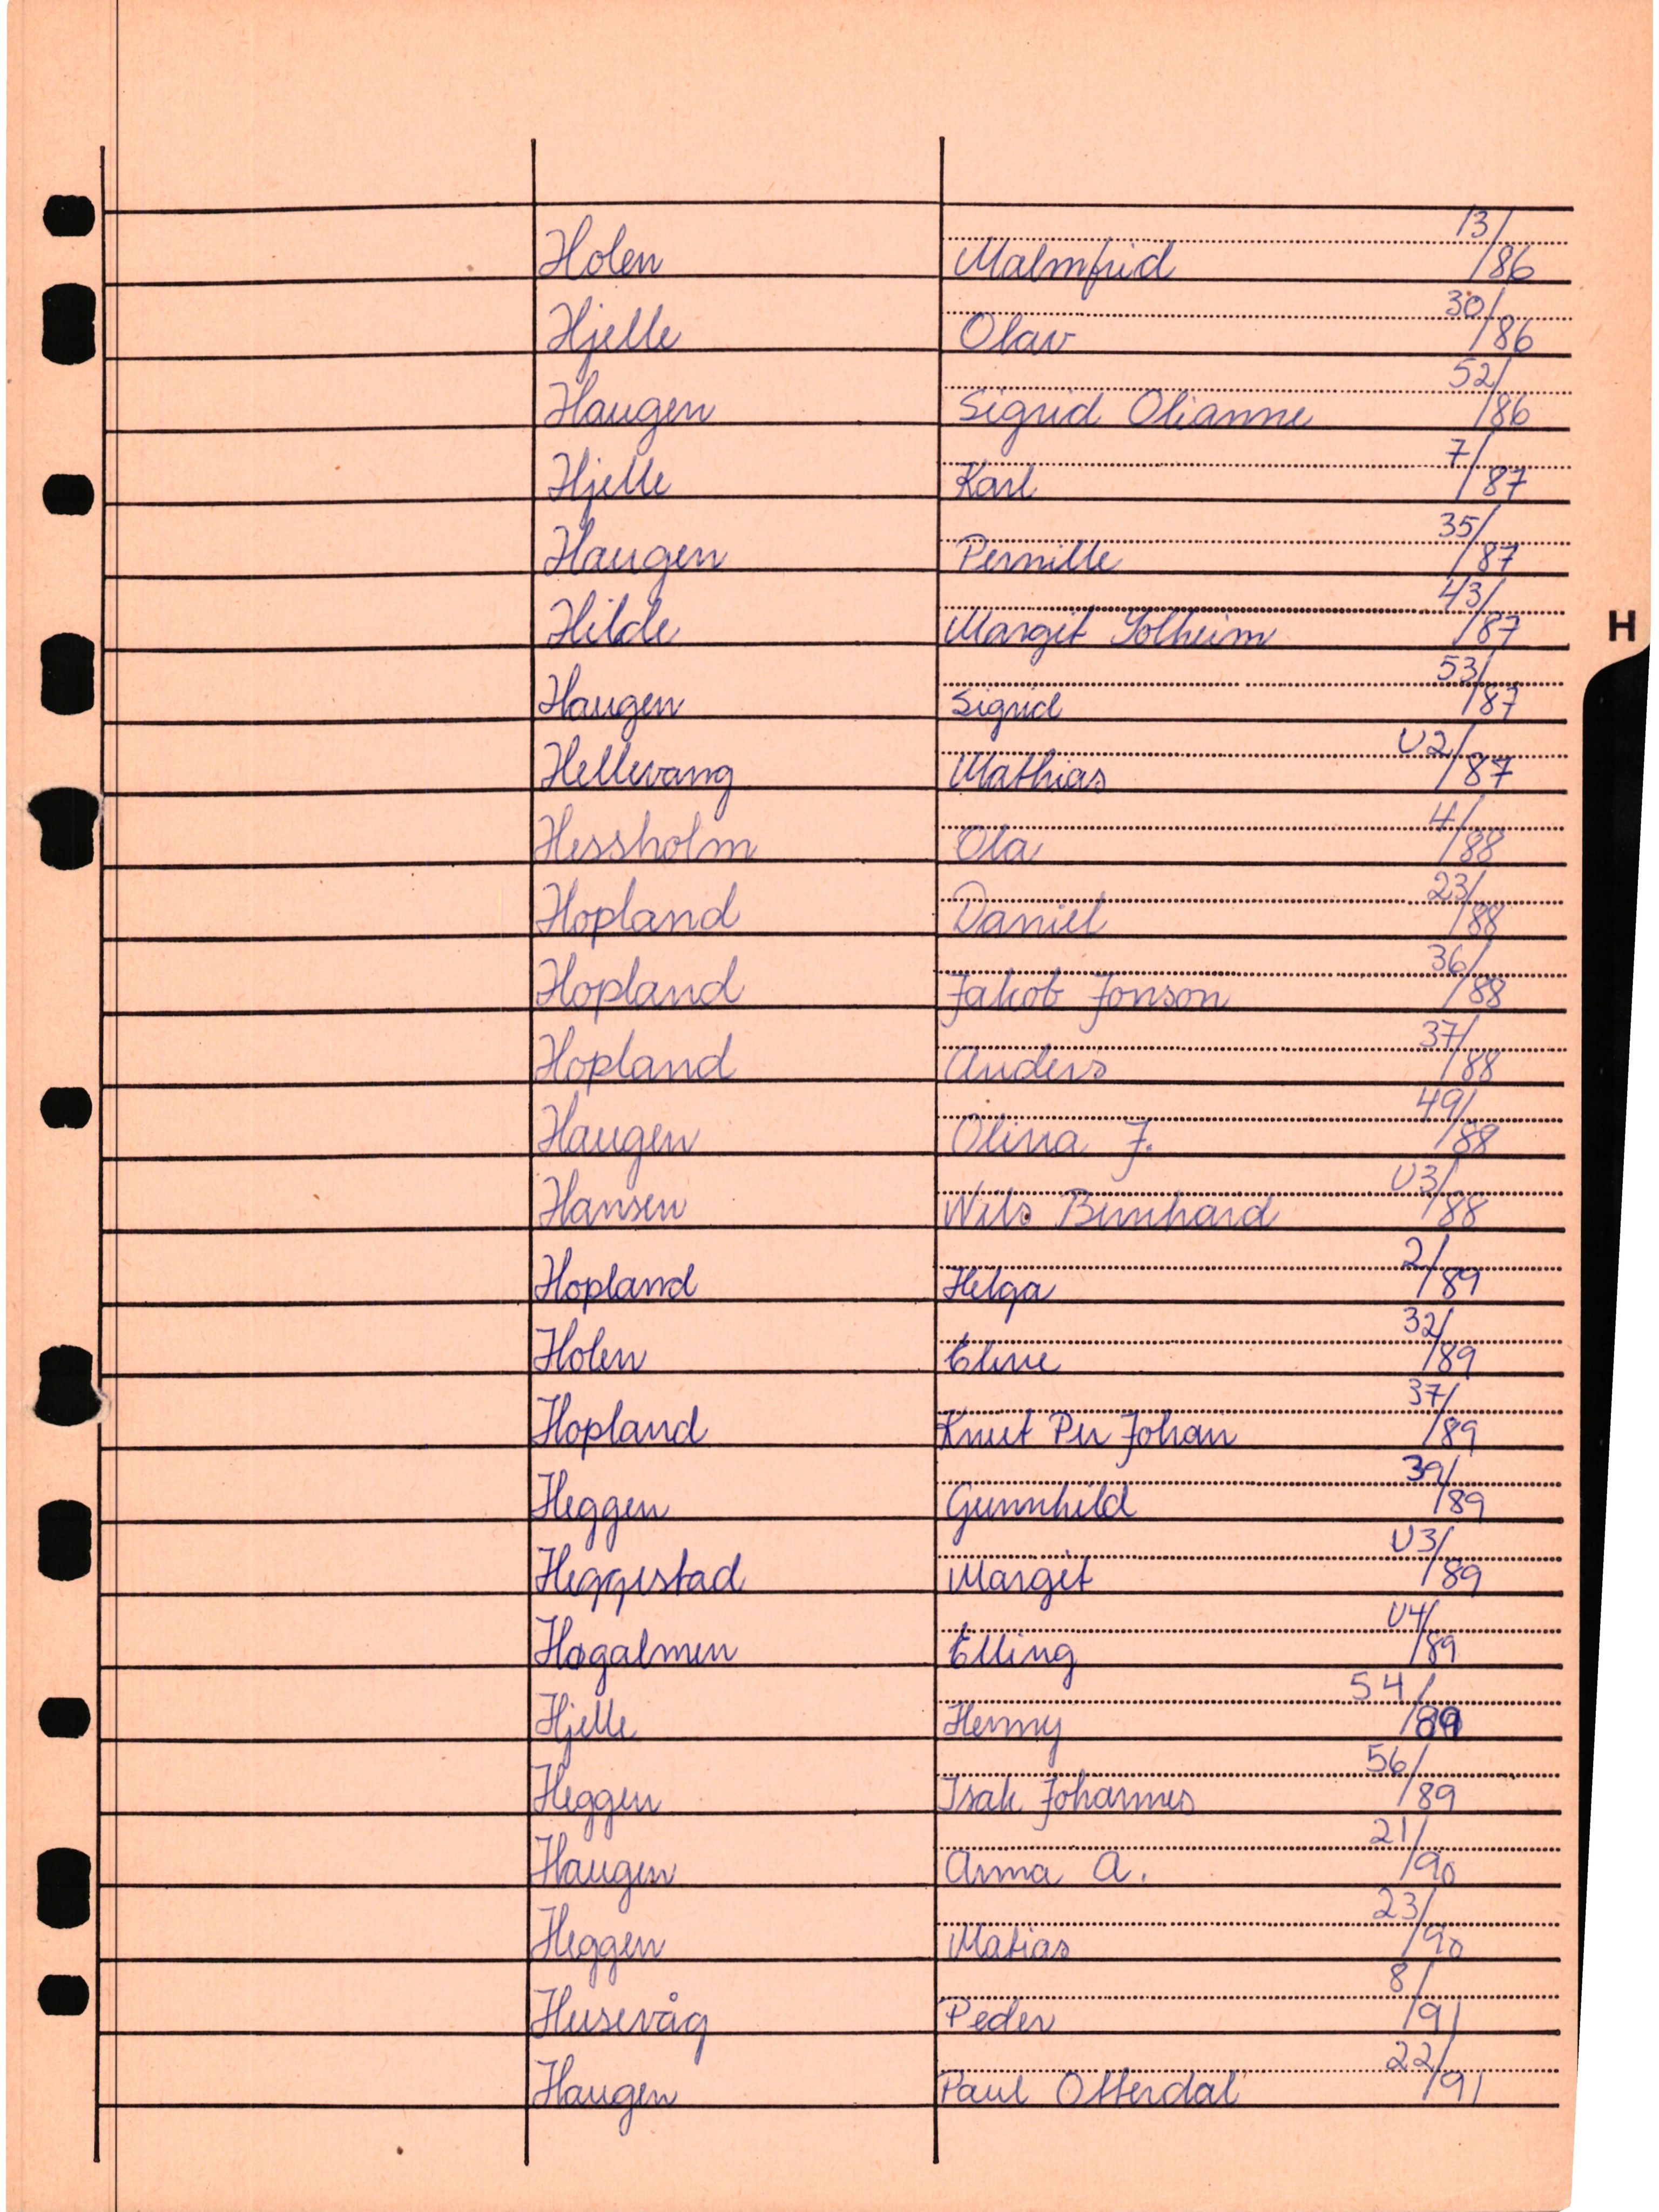 Holen Malmfrid 13/86
Hjelle Olav 30/86
Haugen Sigrid Olianne 52/86
Hjelle Karl 7/87
Haugen Pernille 35/87
Hilde Margit Solheim 43/87
H
Haugen Sigrid 53/87
Hellevang Mathias U2/87
Hessholm Ola 4/88
Hopland Daniel 23/88
Hopland Jakob Jonson 36/88
Hopland Anders 37/88
Haugen Olina J. 49/88
Hansen Nils Bernhard U3/88
Hopland Helga 2/89
Holen Eline 32/89
Hopland Knut Per Johan 37/89
Heggen Gunnhild 39/89
Heggestad Margit U3/89
Høgalmen Elling U4/89
Hjelle Henny 54/89
Heggen Isak Johannes 56/89
Haugen Anna A. 21/90
Heggen Matias 23/90
Husevåg Peder 8/91
Haugen Paul Otterdal 22/91